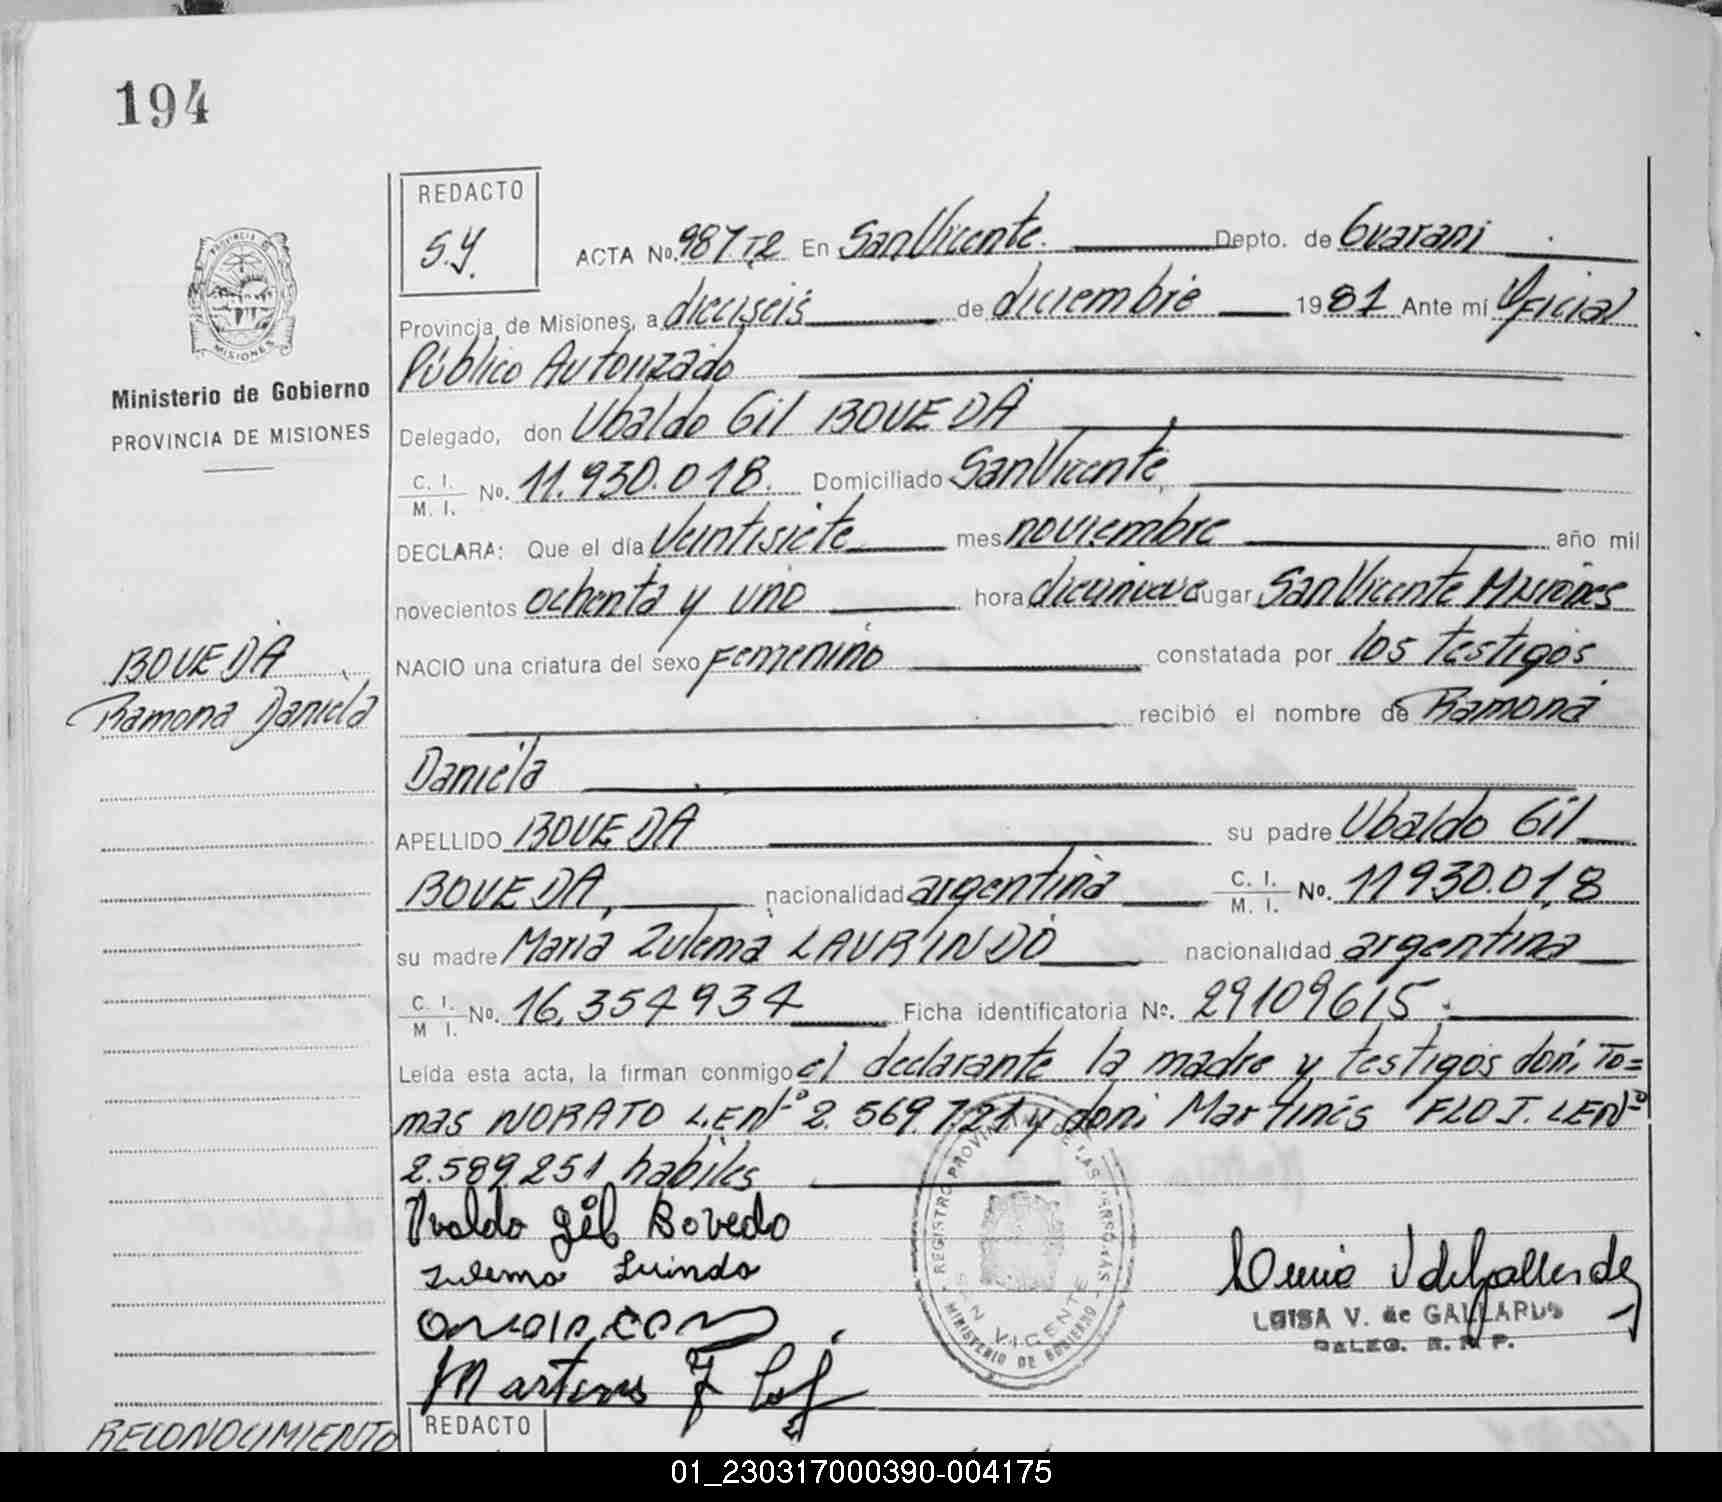 194
REDACTO
S.Y.
ACTA No. 987 T2 En San Vicente. Depto. de Guarani
Provincia de Misiones, a dieciseis de diciembre 1981 Ante mí Oficial
Público Autorizado
Delegado, don Ubaldo Gil BOVEDA
C. I.
M. I. No. 11.930.018. Domiciliado San Vicente
DECLARA: Que el día Veintisiete mes noviembre año mil
novecientos ochenta y uno hora diecinueve lugar San Vicente Misiones
NACIO una criatura del sexo Femenino constatada por los testigos
recibió el nombre de Ramona
Daniela
APELLIDO BOVEDA su padre Ubaldo Gil
BOVEDA, nacionalidad argentina C. I.
M. I. No. 11930.018
su madre Maria Zulema LAURINDO nacionalidad argentina
C. I.
M I. No. 16.354934 Ficha identificatoria No. 29109615.
Leída esta acta, la firman conmigo el declarante la madre y testigos don: To=
mas NORATO L.E.Nº 2.569.721 y don: Martinés FLOJ. LENº
2.589.251 habiles
Uvaldo gil Bovedo
Zulema Luindo
Martines F
LUISA V. de GALLARDO
DELEG. R. P. P.
PROVINCIA DE
MISIONES
Ministerio de Gobierno
PROVINCIA DE MISIONES
BOVEDA
Ramona Daniela
REGISTRO PROVINCIAL DE LAS PERSONAS
SAN VICENTE
MINISTERIO DE GOBIERNO
RECONOCIMIENTO
REDACTO
01_230317000390-004175